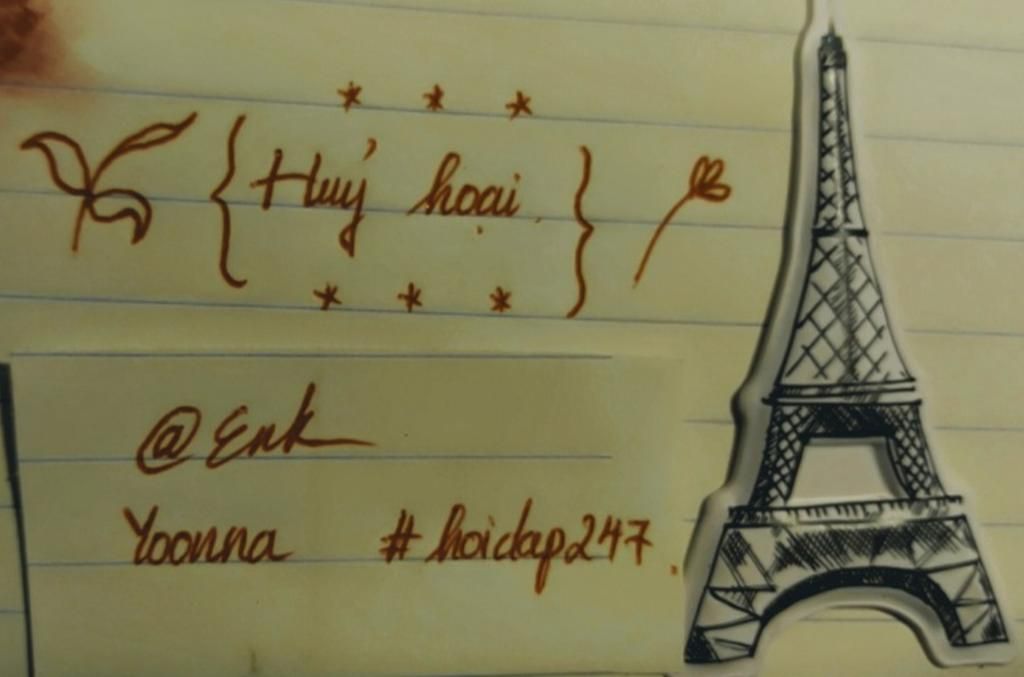 * * *
{ Huỷ hoại }
* * *
@Enk
Yoonna #hoidap247.